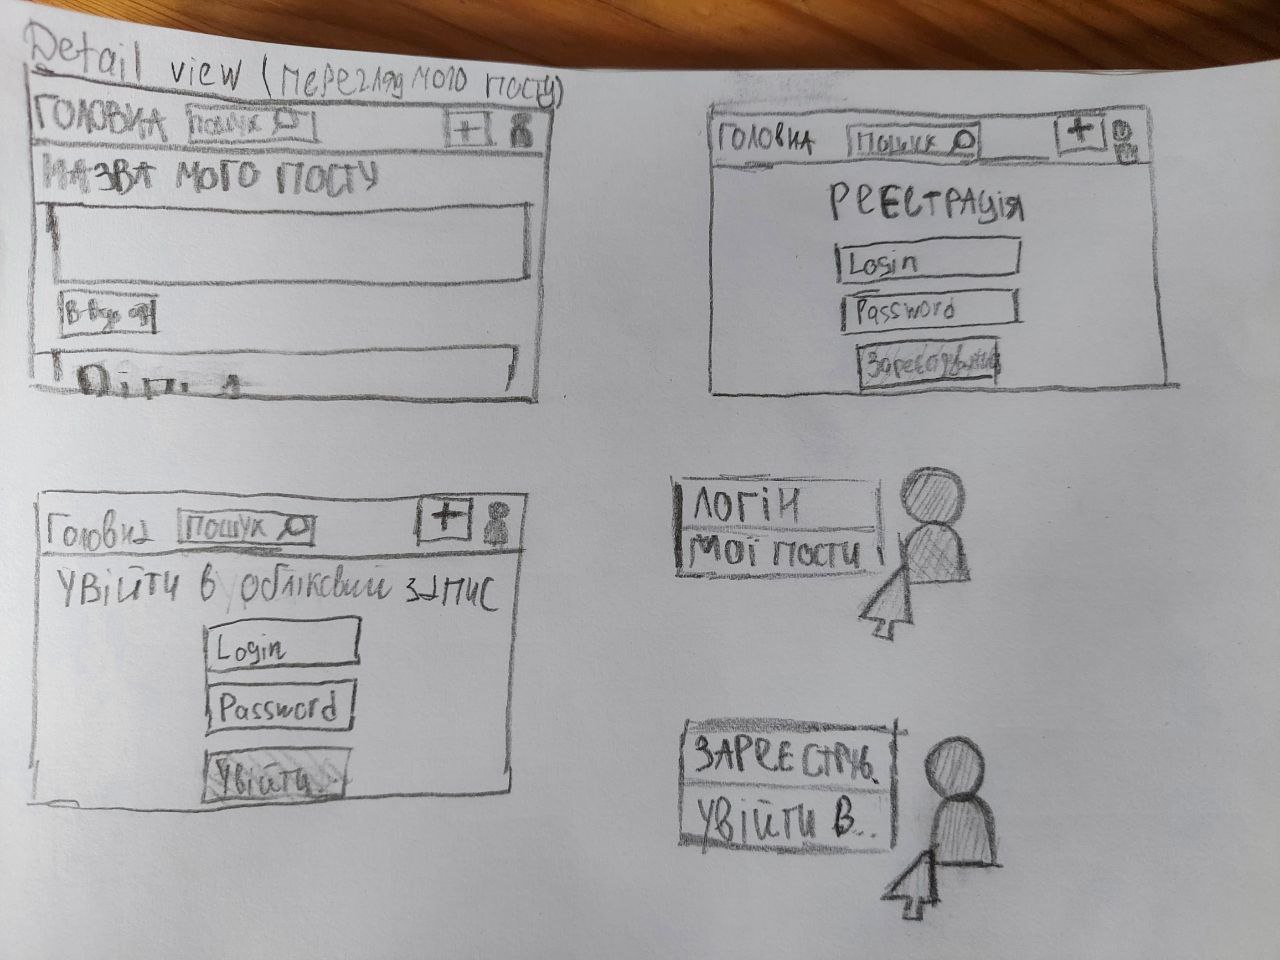 Detail view (перегляд мого посту)
ГОЛОВНА пошук +
НАЗВА МОГО ПОСТУ
ГОЛОВНА Пошук +
РЕЄСТРАЦІЯ
Login
Password
Головна ПОШУК +
УВІЙТИ В ОБЛІКОВИЙ ЗАПИС
Login
Password
Увійти
ЛОГІН
МОЇ ПОСТИ
ЗАРЕЄСТРУВ.
УВІЙТИ В...